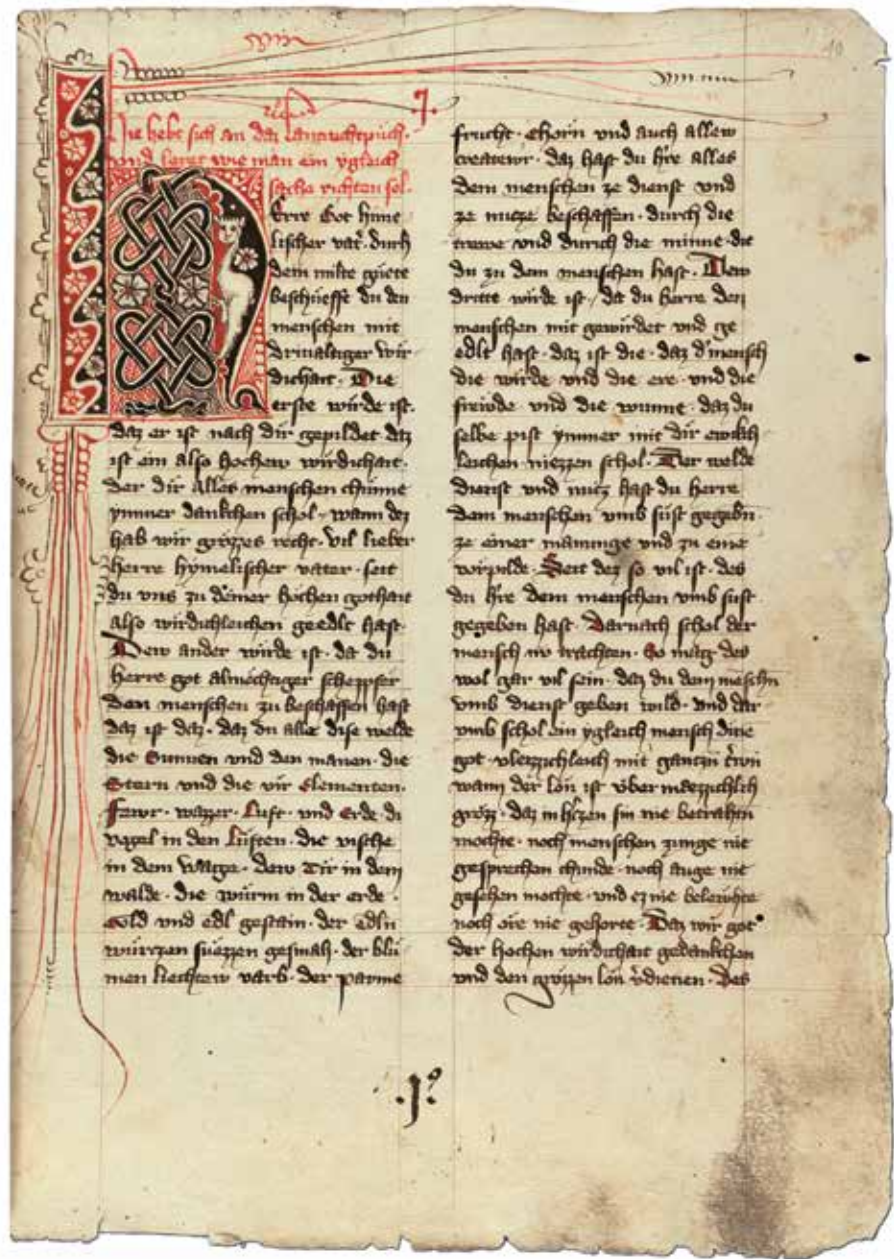 10
Hie hebt sich an daz lantrechtpuch.
und leret wie man ein ygleich
sache richten sol.
Herre Got hime
lischer vat̾. durh
dein milte guete
beschueffe du den
menschen mit
drivaltiger wir
dichait. Die
erste wirde ist.
daz er ist nach dir gepildet daz
ist ein also hochew wirdichait.
der dir alles menschen chunne
ymmer danckchen schol. wann dez
hab wir grozzes recht. vil lieber
herre hymelischer vater. seit
du uns zu deiner hochen gothait
also wirdichleichen geedlt hast.
Dew ander wirde ist. da du
herre got almechtiger schepfer
den menschen zu beschaffen hast
daz ist daz. daz du alle dise welde
die Sunnen und den manen. die
Stern und die vir Elementen.
fewr. wazzer. Luft. und Erde. di
vogel in den Lüften. die vische
in dem Wage. dew Tir in dem
walde. die würm in der erde.
Gold und edl gestain. der edln
würczen süezzen gesmah. der blu
men liechtew varb. der pawme
frucht. chorn und auch allew
createwr. daz hast du h're alles
dem menschen ze dienst und
ze nucze beschaffen. durch die
trewe und durch die minne die
du zu dem menschen hast. Dew
dritte wirde ist. da du herre den
menschen mit gewirdet und ge
edlt hast. daz ist die. daz d'mensch
die wirde und die ere. und die
frewde und die wunne. daz du
selbe pist ymmer mit dir ewich
leichen niezzen schol. Der welde
dienst und nucz hast du herre
dem menschen umb sust gegebn.
ze einer manunge und zu eine
vorpilde. Seit dez so vil ist. des
du h're dem menschen umb sust
gegeben hast. Darnach schol der
mensch nv trachten. So mag dez
wol gar vil sein. daz du dem menschn
umb dienst geben wild. und dar
umb schol ein ygleich mensch diene
got vleizzichleich mit gantzn trewn
wann der lon ist über mezzichlich
grozz. daz in h'czen sin nie betrahtn
mochte. noch menschen zunge nie
gesprechen chunde. noch auge nie
gesehen mochte. und ez nie belewhte
noch ore nie gehorte. Daz wir got
der hochen wirdichait gedankchen
und den grozzen lon v'dienen. Des
.1º